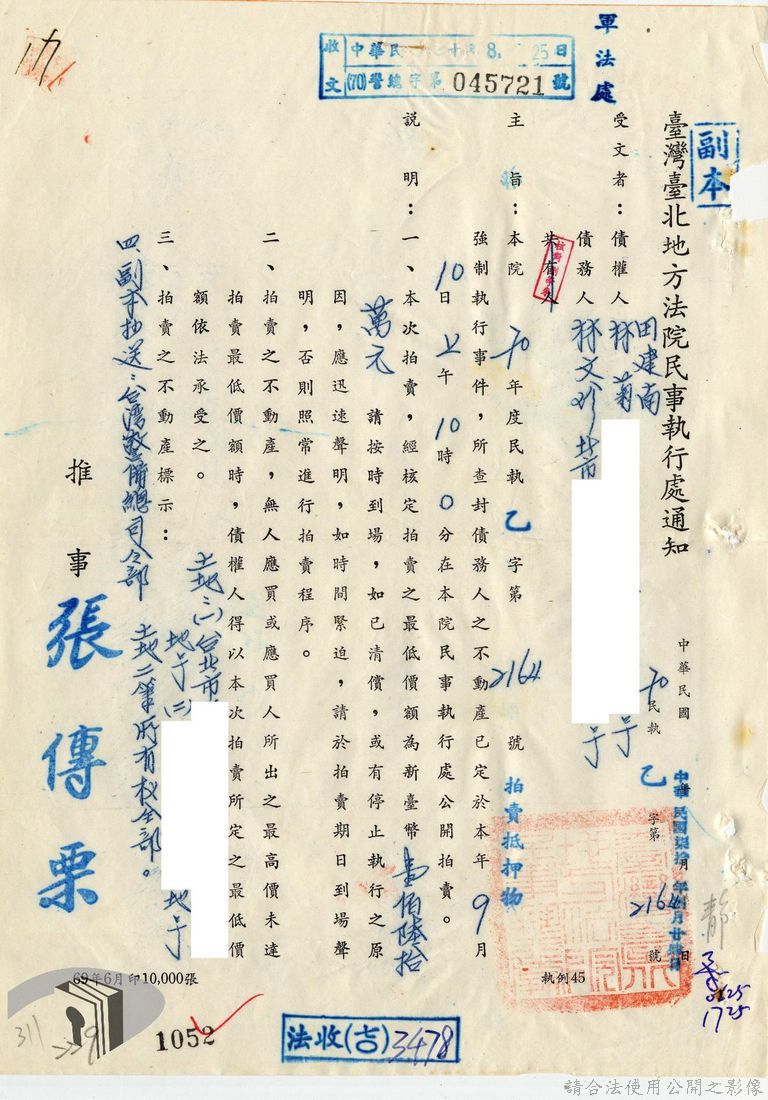 副本
臺灣臺北地方法院民事執行處通知
中華民國 年 月 日
中華民國柒拾年 月廿 日
70民執乙字第2164號
軍法處
受文者：債權人 田建南
林菊
債務人 林文珍 北市
共有人
主旨：本院70年度民執乙字第2164號拍賣抵押物
強制執行事件，所查封債務人之不動產已定於本年9月
10日上午10時0分在本院民事執行處公開拍賣。
說明：一、本次拍賣，經核定拍賣之最低價額為新臺幣壹佰陸拾
萬元 請按時到場，如已清償，或有停止執行之原
因，應迅速聲明，如時間緊迫，請於拍賣期日到場聲
明，否則照常進行拍賣程序。
二、拍賣之不動產，無人應買或應買人所出之最高價未達
拍賣最低價額時，債權人得以本次拍賣所定之最低價
額依法承受之。
三、拍賣之不動產標示：
土地：㈠台北市
地号㈡ 地号
土地二筆所有权全部。
四、副本抄送：台湾警備總司令部
推事 張傳栗
收文
中華民 8. 25日
(70)警總字第045721號
69年6月印10,000張
執例45
1052
法收(吉)3478
311
0825
1725
請合法使用公開之影像